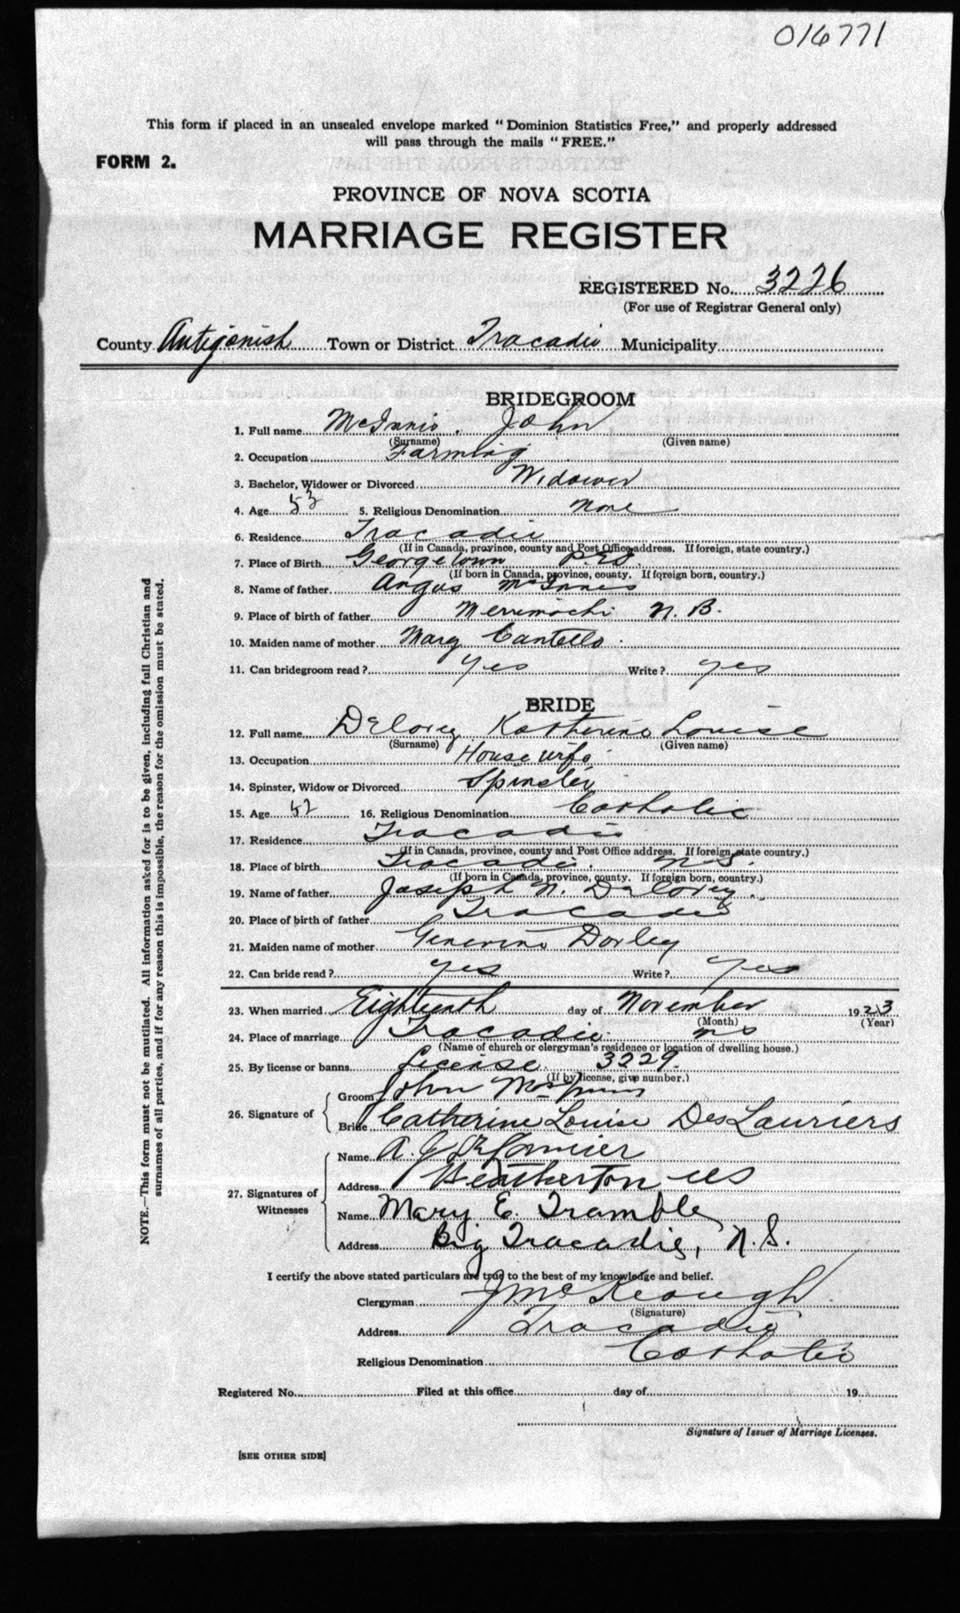 016771
This form if placed in an unsealed envelope marked "Dominion Statistics Free," and properly addressed
will pass through the mails "FREE."
FORM 2.
PROVINCE OF NOVA SCOTIA
MARRIAGE REGISTER
REGISTERED No. 3226
(For use of Registrar General only)
County Antigonish Town or District Tracadie Municipality
BRIDEGROOM
1. Full name McInnis, John
(Surname) (Given name)
2. Occupation Farming
3. Bachelor, Widower or Divorced Widower
4. Age 53 5. Religious Denomination None
6. Residence Tracadie
(If in Canada, province, county and Post Office address. If foreign, state country.)
7. Place of Birth Georgetown P.E.I.
(If born in Canada, province, county. If foreign born, country.)
8. Name of father Angus McInnis
9. Place of birth of father Merrimachi N.B.
10. Maiden name of mother Mary Cantello
11. Can bridegroom read? yes Write? yes
BRIDE
12. Full name DeLorey Katherine Louise
(Surname) (Given name)
13. Occupation Housewife
14. Spinster, Widow or Divorced Spinster
15. Age 52 16. Religious Denomination Catholic
17. Residence Tracadie
(If in Canada, province, county and Post Office address. If foreign, state country.)
18. Place of birth Tracadie. N.S.
(If born in Canada, province, county. If foreign born, country.)
19. Name of father Joseph N. DeLorey
20. Place of birth of father Tracadie
21. Maiden name of mother Genevive Dorley
22. Can bride read? yes Write? yes
23. When married Eighteenth day of November 1923
(Month) (Year)
24. Place of marriage Tracadie NS
(Name of church or clergyman's residence or location of dwelling house.)
25. By license or banns License 3229.
(If by license, give number.)
26. Signature of
Groom John
Bride Catherine Louise DesLauriers
27. Signatures of Witnesses
Name A. J.
Address Heatherton NS
Name Mary E. Tramble
Address Big Tracadie, N.S.
I certify the above stated particulars are true to the best of my knowledge and belief.
Clergyman J McKeough
(Signature)
Address Tracadie
Religious Denomination Catholic
Registered No. Filed at this office day of 19
Signature of Issuer of Marriage Licenses.
[SEE OTHER SIDE]
NOTE.—This form must not be mutilated. All information asked for is to be given, including full Christian and
surnames of all parties, and if for any reason this is impossible, the reason for the omission must be stated.